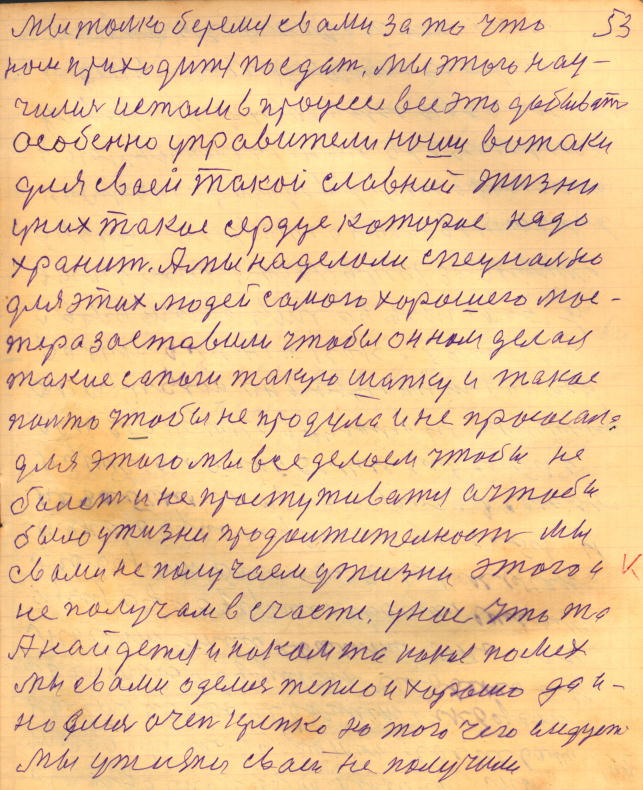 мы толко беремся свами за то что 53
нам приходится поедат, мы этого нау-
чился истали в процесе все это добыват
особенно управители наши вотаки
для своей такой славной жизни
уних такое сердце которое надо
хранит. А мы наделали специално
для этих людей самого хорошего мас-
тера заставили чтобы он нам делал
такие сапоги такую шапку и такое
палто чтобы не продула и не
для этого мы все делаем чтобы не
болет и не простуживатся а чтобы
было ужизни продолжителност мы
свами не получаем ужизни этого и
не получам в счасте, унас что то
А найдется и накомта какая помех
мы свами оделися тепло и хорошо да и-
но очен крепко но того чего следует
мы ужизни своей не получили